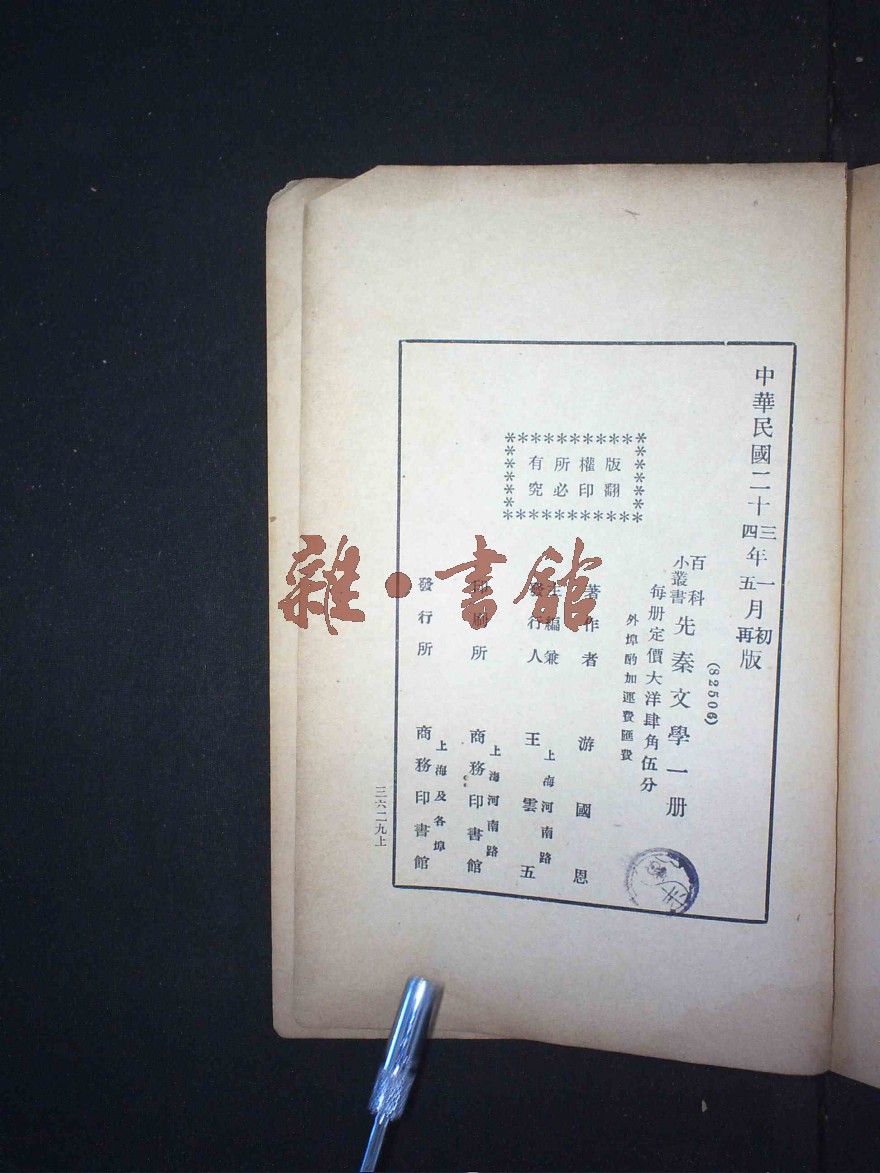 中華民國二十三年一月初版
四年五月再版
(82506)
百科小叢書 先秦文學一册
每册定價大洋肆角伍分
外埠酌加運費匯費
版權所有
翻印必究
著作者 游國恩
主編兼發行人 王雲五
上海河南路
印刷所 商務印書館
上海河南路
發行所 商務印書館
上海及各埠
三六二九上
雜·書館